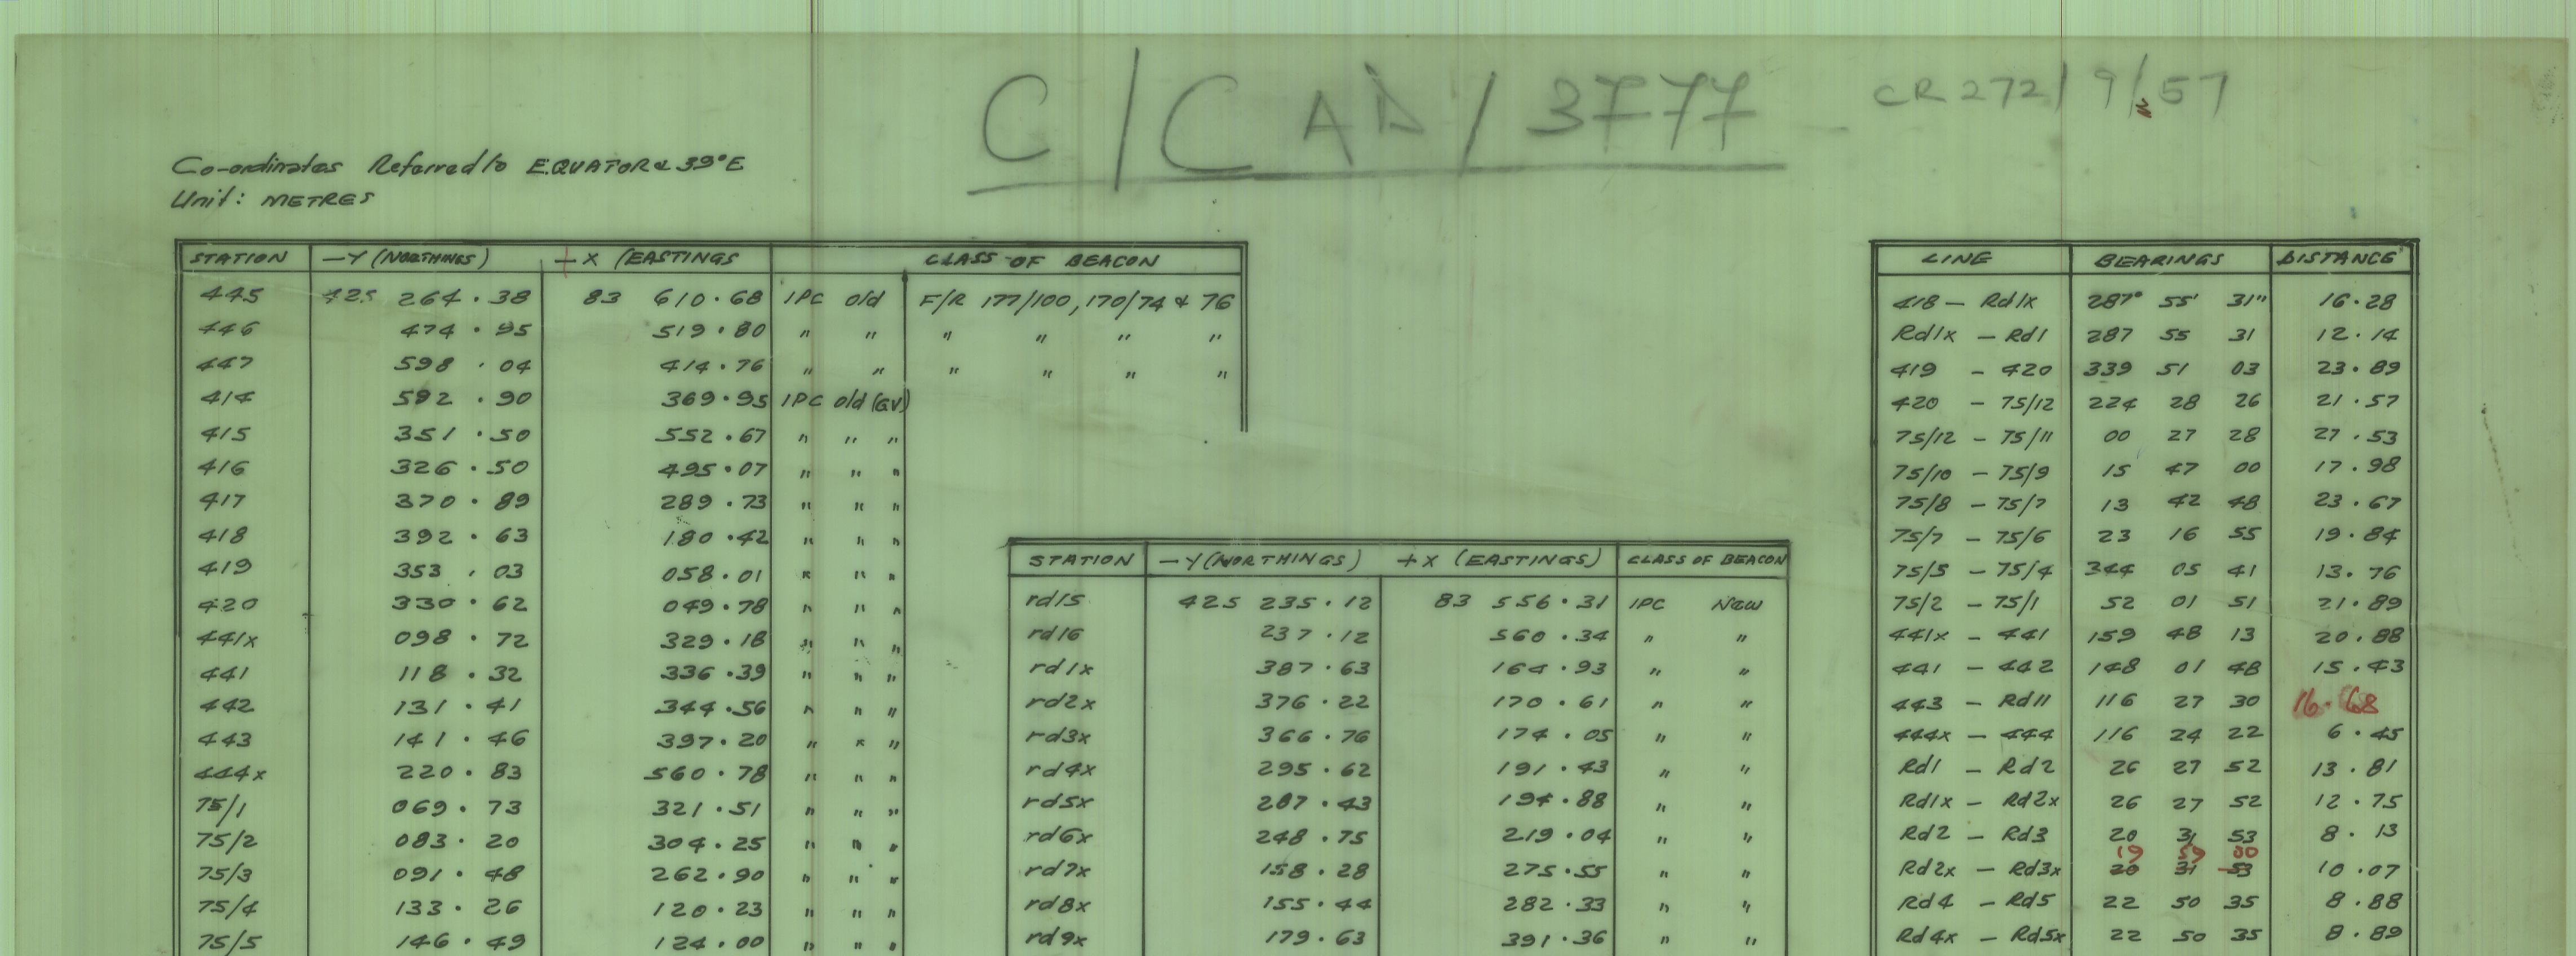 C/CAD/3777
CR 272/9/57
Co-ordinates Referred to EQUATOR & 39°E
Unit: METRES
STATION -Y (NORTHINGS) +X (EASTINGS CLASS OF BEACON
445 425 264.38 83 610.68 IPC old F/R 177/100, 170/74 & 76
446 474.95 519.80 " " " " " "
447 598.04 414.76 " " " " " "
414 592.90 369.95 IPC old (GV)
415 351.50 552.67 " " "
416 326.50 495.07 " " "
417 370.89 289.73 " " "
418 392.63 180.42 " " "
419 353.03 058.01 " " "
420 330.62 049.78 " " "
441x 098.72 329.18 " " "
441 118.32 336.39 " " "
442 131.41 344.56 " " "
443 141.46 397.20 " " "
444x 220.83 560.78 " " "
75/1 069.73 321.51 " " "
75/2 083.20 304.25 " " "
75/3 091.48 262.90 " " "
75/4 133.26 120.23 " " "
75/5 146.49 124.00 " " "
STATION -Y (NORTHINGS) +X (EASTINGS) CLASS OF BEACON
rd15 425 235.12 83 556.31 IPC New
rd16 237.12 560.34 " "
rd1x 387.63 164.93 " "
rd2x 376.22 170.61 " "
rd3x 366.76 174.05 " "
rd4x 295.62 191.43 " "
rd5x 287.43 194.88 " "
rd6x 248.75 219.04 " "
rd7x 158.28 275.55 " "
rd8x 155.44 282.33 " "
rd9x 179.63 391.36 " "
LINE BEARINGS DISTANCE
418 - Rd1x 287° 55' 31" 16.28
Rd1x - Rd1 287 55 31 12.14
419 - 420 339 51 03 23.89
420 - 75/12 224 28 26 21.57
75/12 - 75/11 00 27 28 27.53
75/10 - 75/9 15 47 00 17.98
75/8 - 75/7 13 42 48 23.67
75/7 - 75/6 23 16 55 19.84
75/5 - 75/4 344 05 41 13.76
75/2 - 75/1 52 01 51 21.89
441x - 441 159 48 13 20.88
441 - 442 148 01 48 15.43
443 - Rd11 116 27 30 16.68
444x - 444 116 24 22 6.45
Rd1 - Rd2 26 27 52 13.81
Rd1x - Rd2x 26 27 52 12.75
Rd2 - Rd3 20 31 53 8.13
19 59 00
Rd2x - Rd3x 20 31 53 10.07
Rd4 - Rd5 22 50 35 8.88
Rd4x - Rd5x 22 50 35 8.89